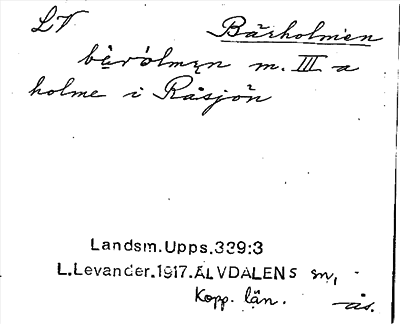 LV Bärholmen
bèrólmȩn m. III a
holme i Råsjön
Landsm.Upps.339:3
L.Levander.1917.ÄLVDALENS sn,
Kopp. län. ås.